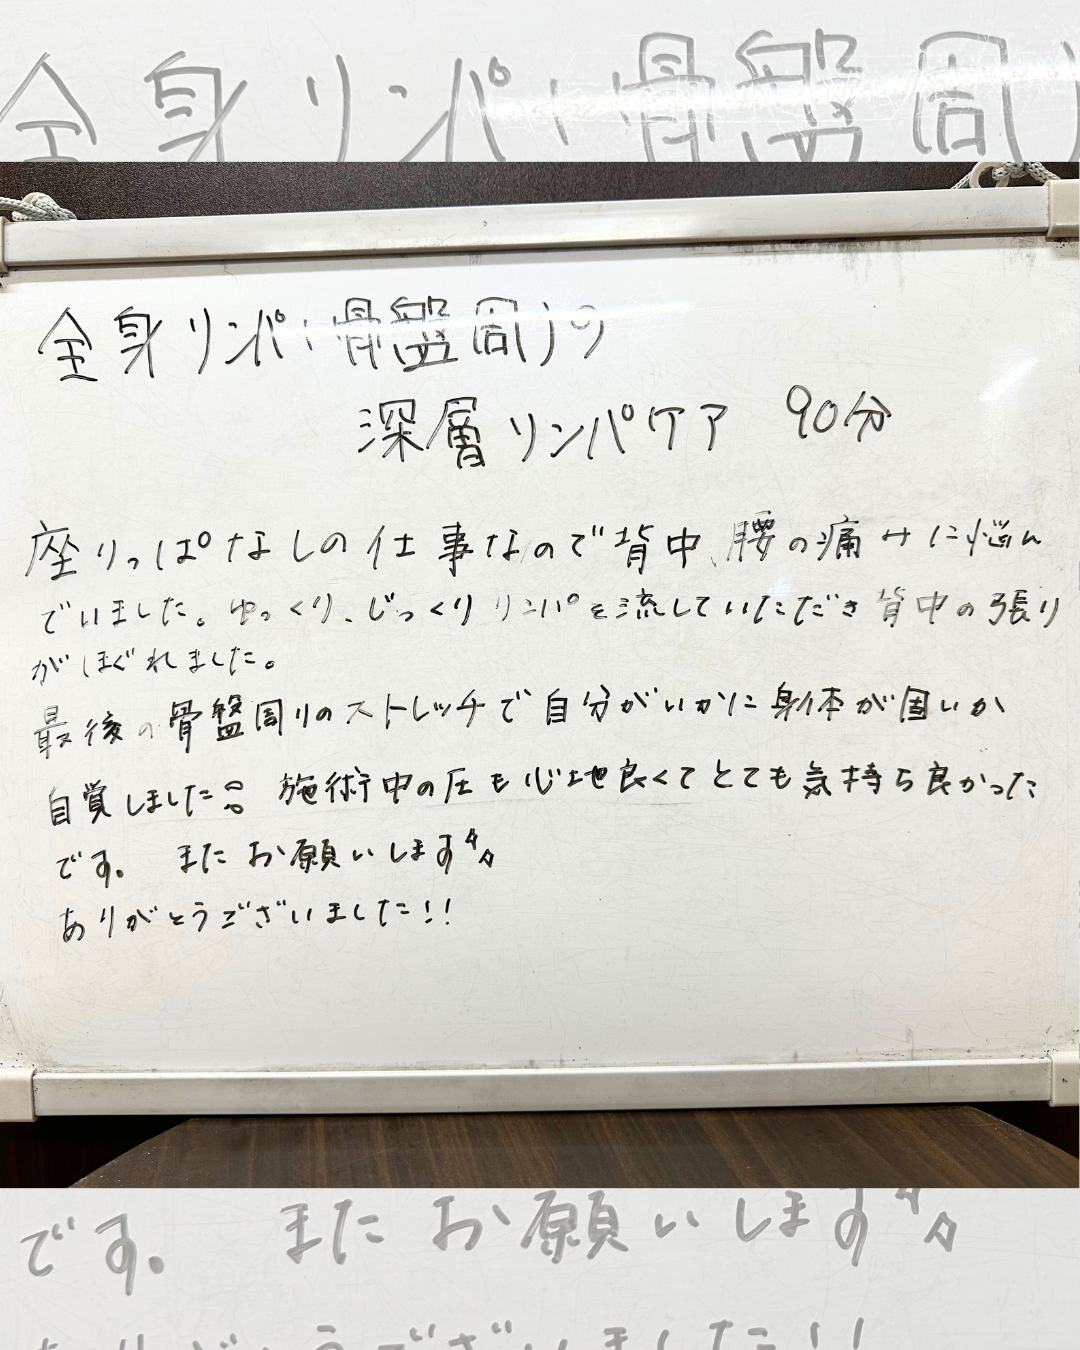 全身リンパ・骨盤周り
全身リンパ・骨盤周りの
深層リンパケア 90分
座りっぱなしの仕事なので背中、腰の痛みに悩ん
でいました。ゆっくり、じっくりリンパを流していただき背中の張り
がほぐれました。
最後の骨盤周りのストレッチで自分がいかに身体が固いか
自覚しました。 施術中の圧も心地良くてとても気持ち良かった
です。 またお願いします
ありがとうございました!!
です。 またお願いします
ありがとうございました!!